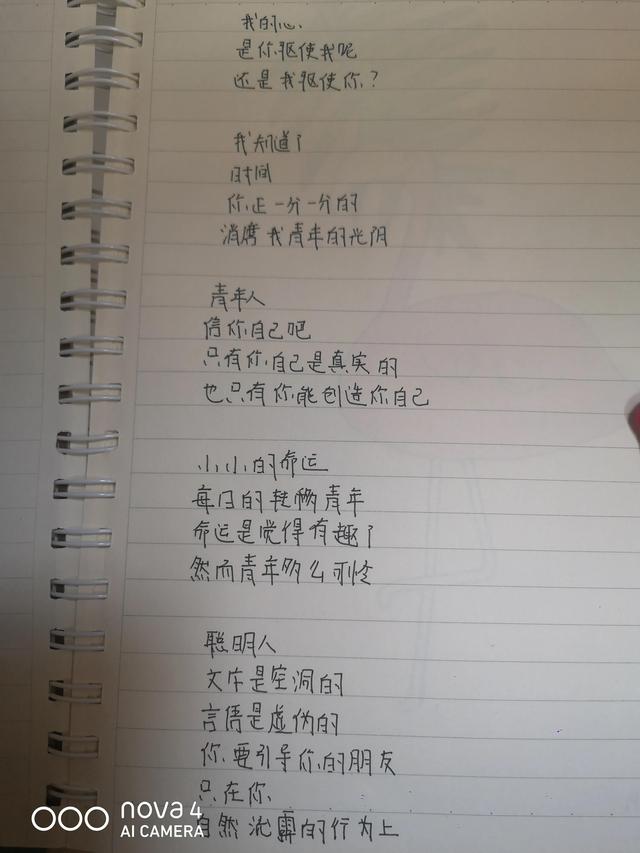 我的心
是你驱使我呢
还是我驱使你？
我知道了
时间
你正一分一分的
消磨我青年的光阴
青年人
信你自己吧
只有你自己是真实的
也只有你能创造你自己
小小的命运
每日的转物青年
命运是觉得有趣了
然而青年多么可怜
聪明人
文字是空洞的
言语是虚伪的
你要引导你的朋友
只在你
自然流露的行为上
nova 4
AI CAMERA